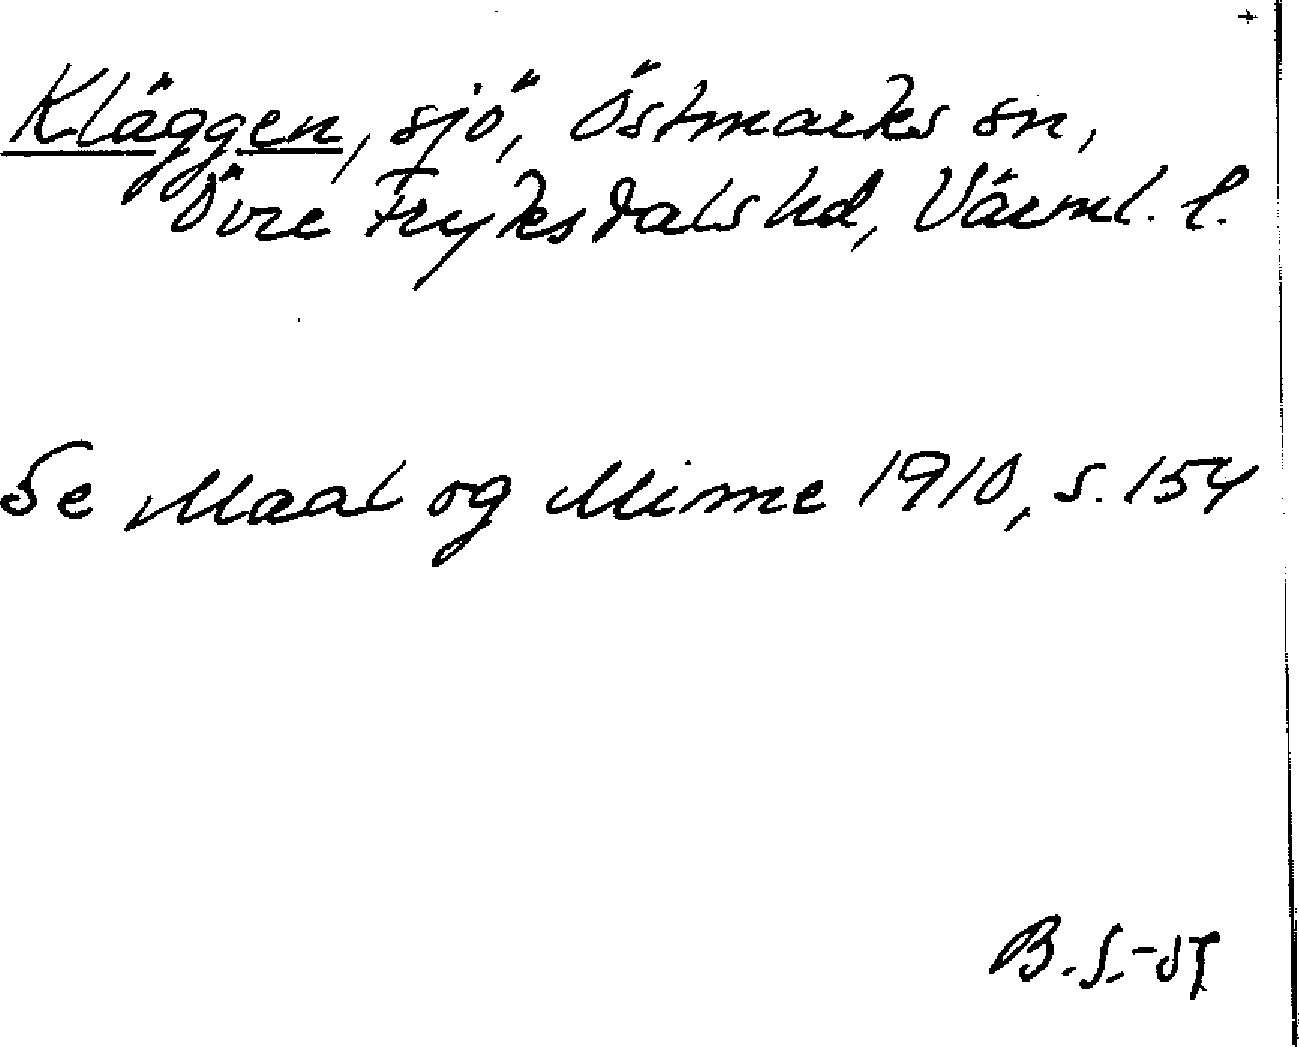 Kläggen, sjö, Östmarks sn,
Övre Fryksdals hd, Värml. l.
Se Maal og Minne 1910, s. 154
B. S.